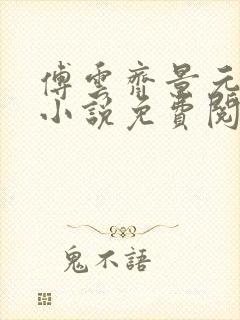 傅雲齊景元
小說免費閱
鬼不語